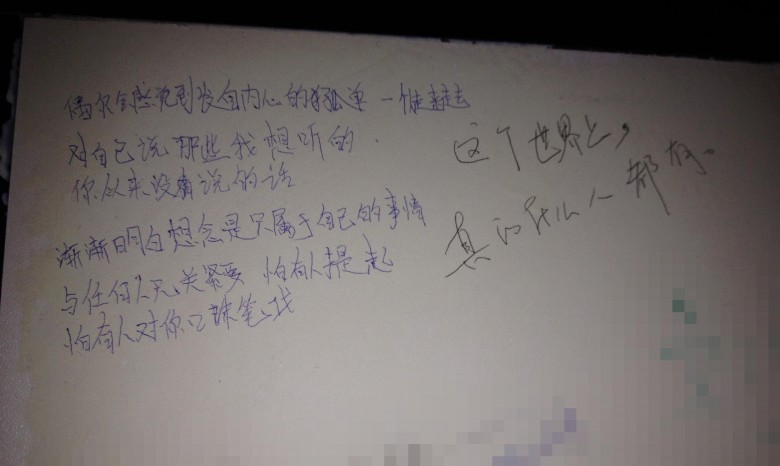 偶尔会感觉到发自内心的孤单 一个人走来走去
对自己说那些我想听的
你从来没有说的话
渐渐明白想念是只属于自己的事情
与任何人无关紧要 怕有人提起
怕有人对你口诛笔伐
这个世界上,
真的什么人都有.